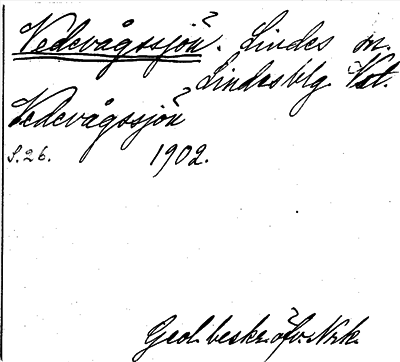 Vedevågssjön. Lindes sn.
Lindesblg. Vst.
Vedevågssjön
S. 26. 1902.
Geol. beskr. öfv. Nrk.